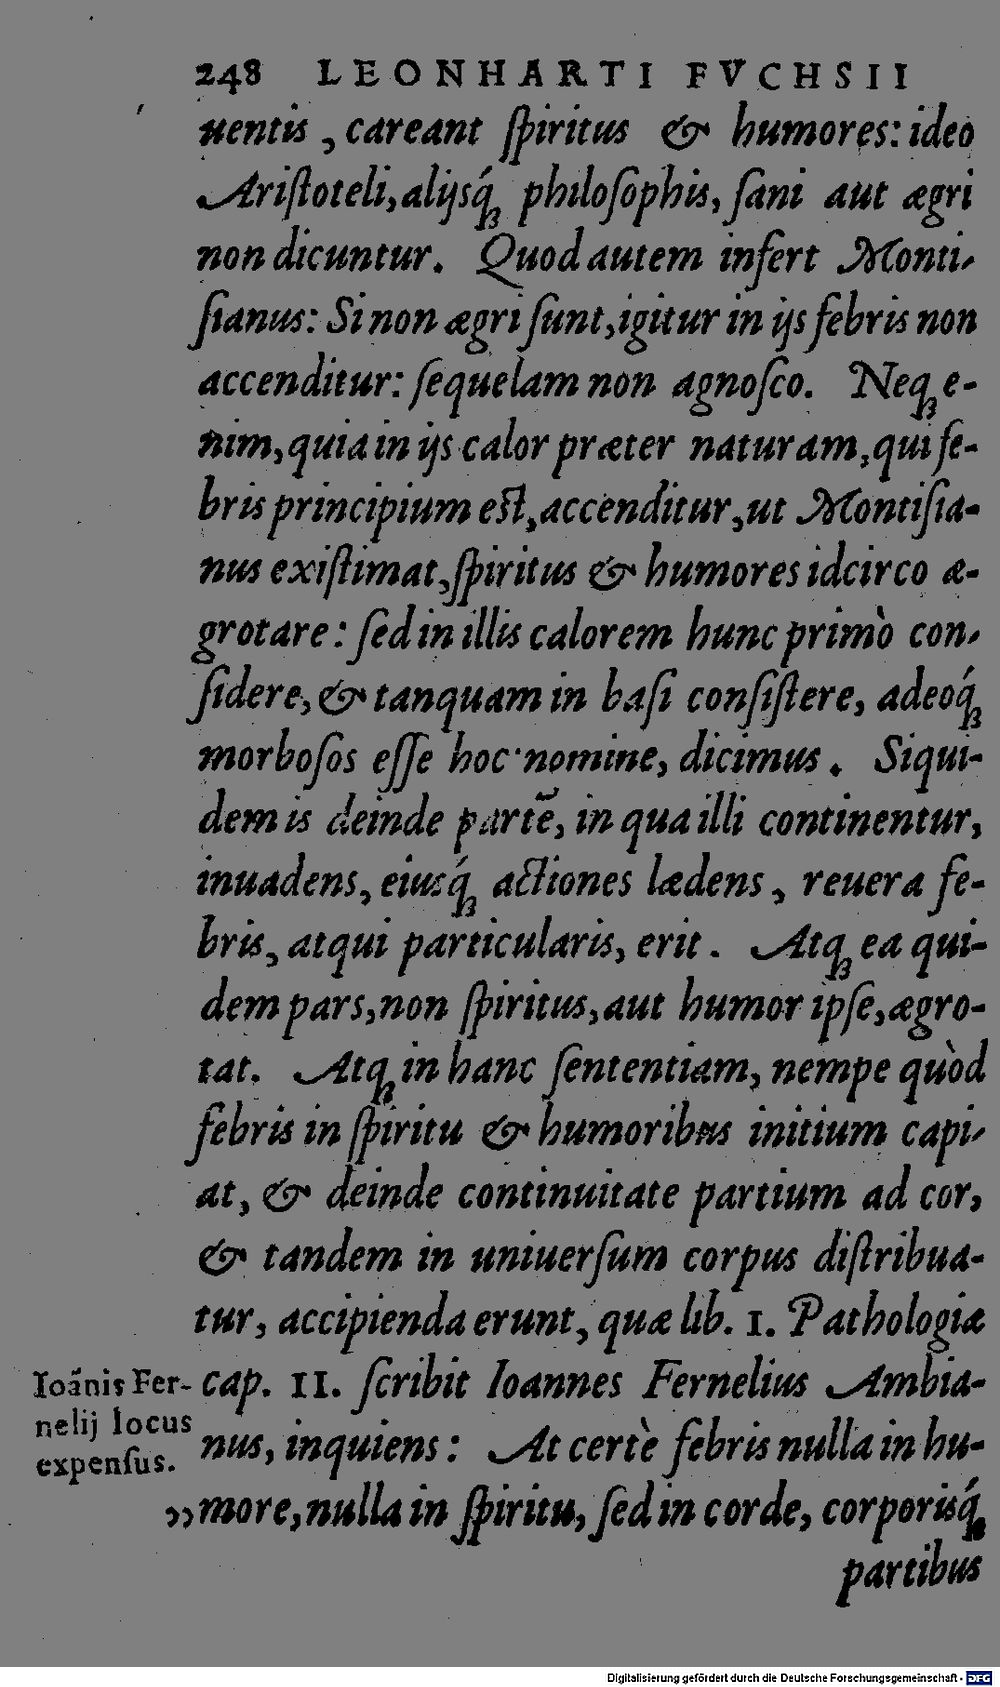 248 LEONHARTI FVCHSII
uentis, careant ſpiritus & humores: ideo
Ariſtoteli, alijsq́ꝫ philoſophis, ſani aut ægri
non dicuntur. Quod autem infert Monti-
ſianus: Si non ægri ſunt, igitur in ijs febris non
accenditur: ſequelam non agnoſco. Neqꝫ e-
nim, quia in ijs calor præter naturam, qui fe-
bris principium est, accenditur, ut Montiſia-
nus exiſtimat, ſpiritus & humores idcirco æ-
grotare: ſed in illis calorem hunc primò con-
ſidere, & tanquam in baſi conſiſtere, adeoq́ꝫ
morboſos eſſe hoc nomine, dicimus. Siqui-
dem is deinde partẽ, in qua illi continentur,
inuadens, eiusq́ꝫ actiones lædens, reuera fe-
bris, atqui particularis, erit. Atqꝫ ea qui-
dem pars, non ſpiritus, aut humor ipſe, ægro-
tat. Atqꝫ in hanc ſententiam, nempe quòd
febris in ſpiritu & humoribus initium capi-
at, & deinde continuitate partium ad cor,
& tandem in uniuerſum corpus diſtribua-
tur, accipienda erunt, quæ lib. 1. Pathologiæ
cap. 11. ſcribit Ioannes Fernelius Ambia-
nus, inquiens: At certè febris nulla in hu-
,, more, nulla in ſpiritu, ſed in corde, corporisq́ꝫ
partibus
Ioãnis Fer-
nelij locus
expenſus.
Digitalisierung gefördert durch die Deutsche Forschungsgemeinschaft - DFG